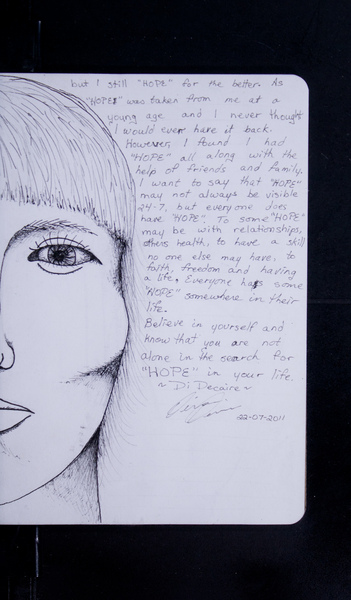 but I still "HOPE" for the better. As
"HOPE" was taken from me at a
young age and I never thought
I would ever have it back.
However, I found I had
"HOPE" all along with the
help of friends and family.
I want to say that "HOPE"
may not always be visible
24-7, but everyone does
have "HOPE". To some "HOPE"
may be with relationships,
others health, to have a skill
no one else may have, to
faith, freedom and having
a life. Everyone has some
"HOPE" somewhere in their
life.
Believe in yourself and
know that you are not
alone in the search for
"HOPE" in your life.
~ Di Decaire ~
22-07-2011